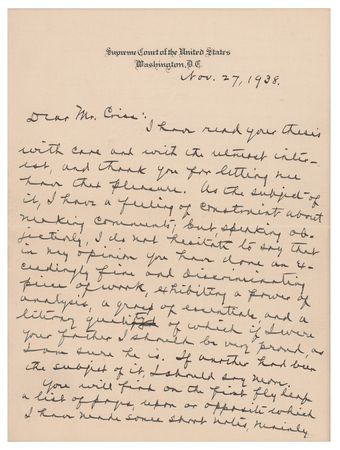 Supreme Court of the United States
Washington, D.C.
Nov. 27, 1938.
Dear Mr. Criss:
I have read your thesis
with care and with the utmost inter-
est, and thank you for letting me
have this pleasure. As the subject of
it, I have a feeling of constraint about
making comments; but speaking ob-
jectively, I do not hesitate to say that
in my opinion you have done an ex-
ceedingly fine and discriminating
piece of work, exhibiting a power of
analysis, a grasp of essentials, and a
literary quality of which if I were
your father I should be very proud, as
I am sure he is. If another had been
the subject of it, I should say more.
You will find on the first fly leaf
a list of pages, upon or opposite which
I have made some short notes, mainly